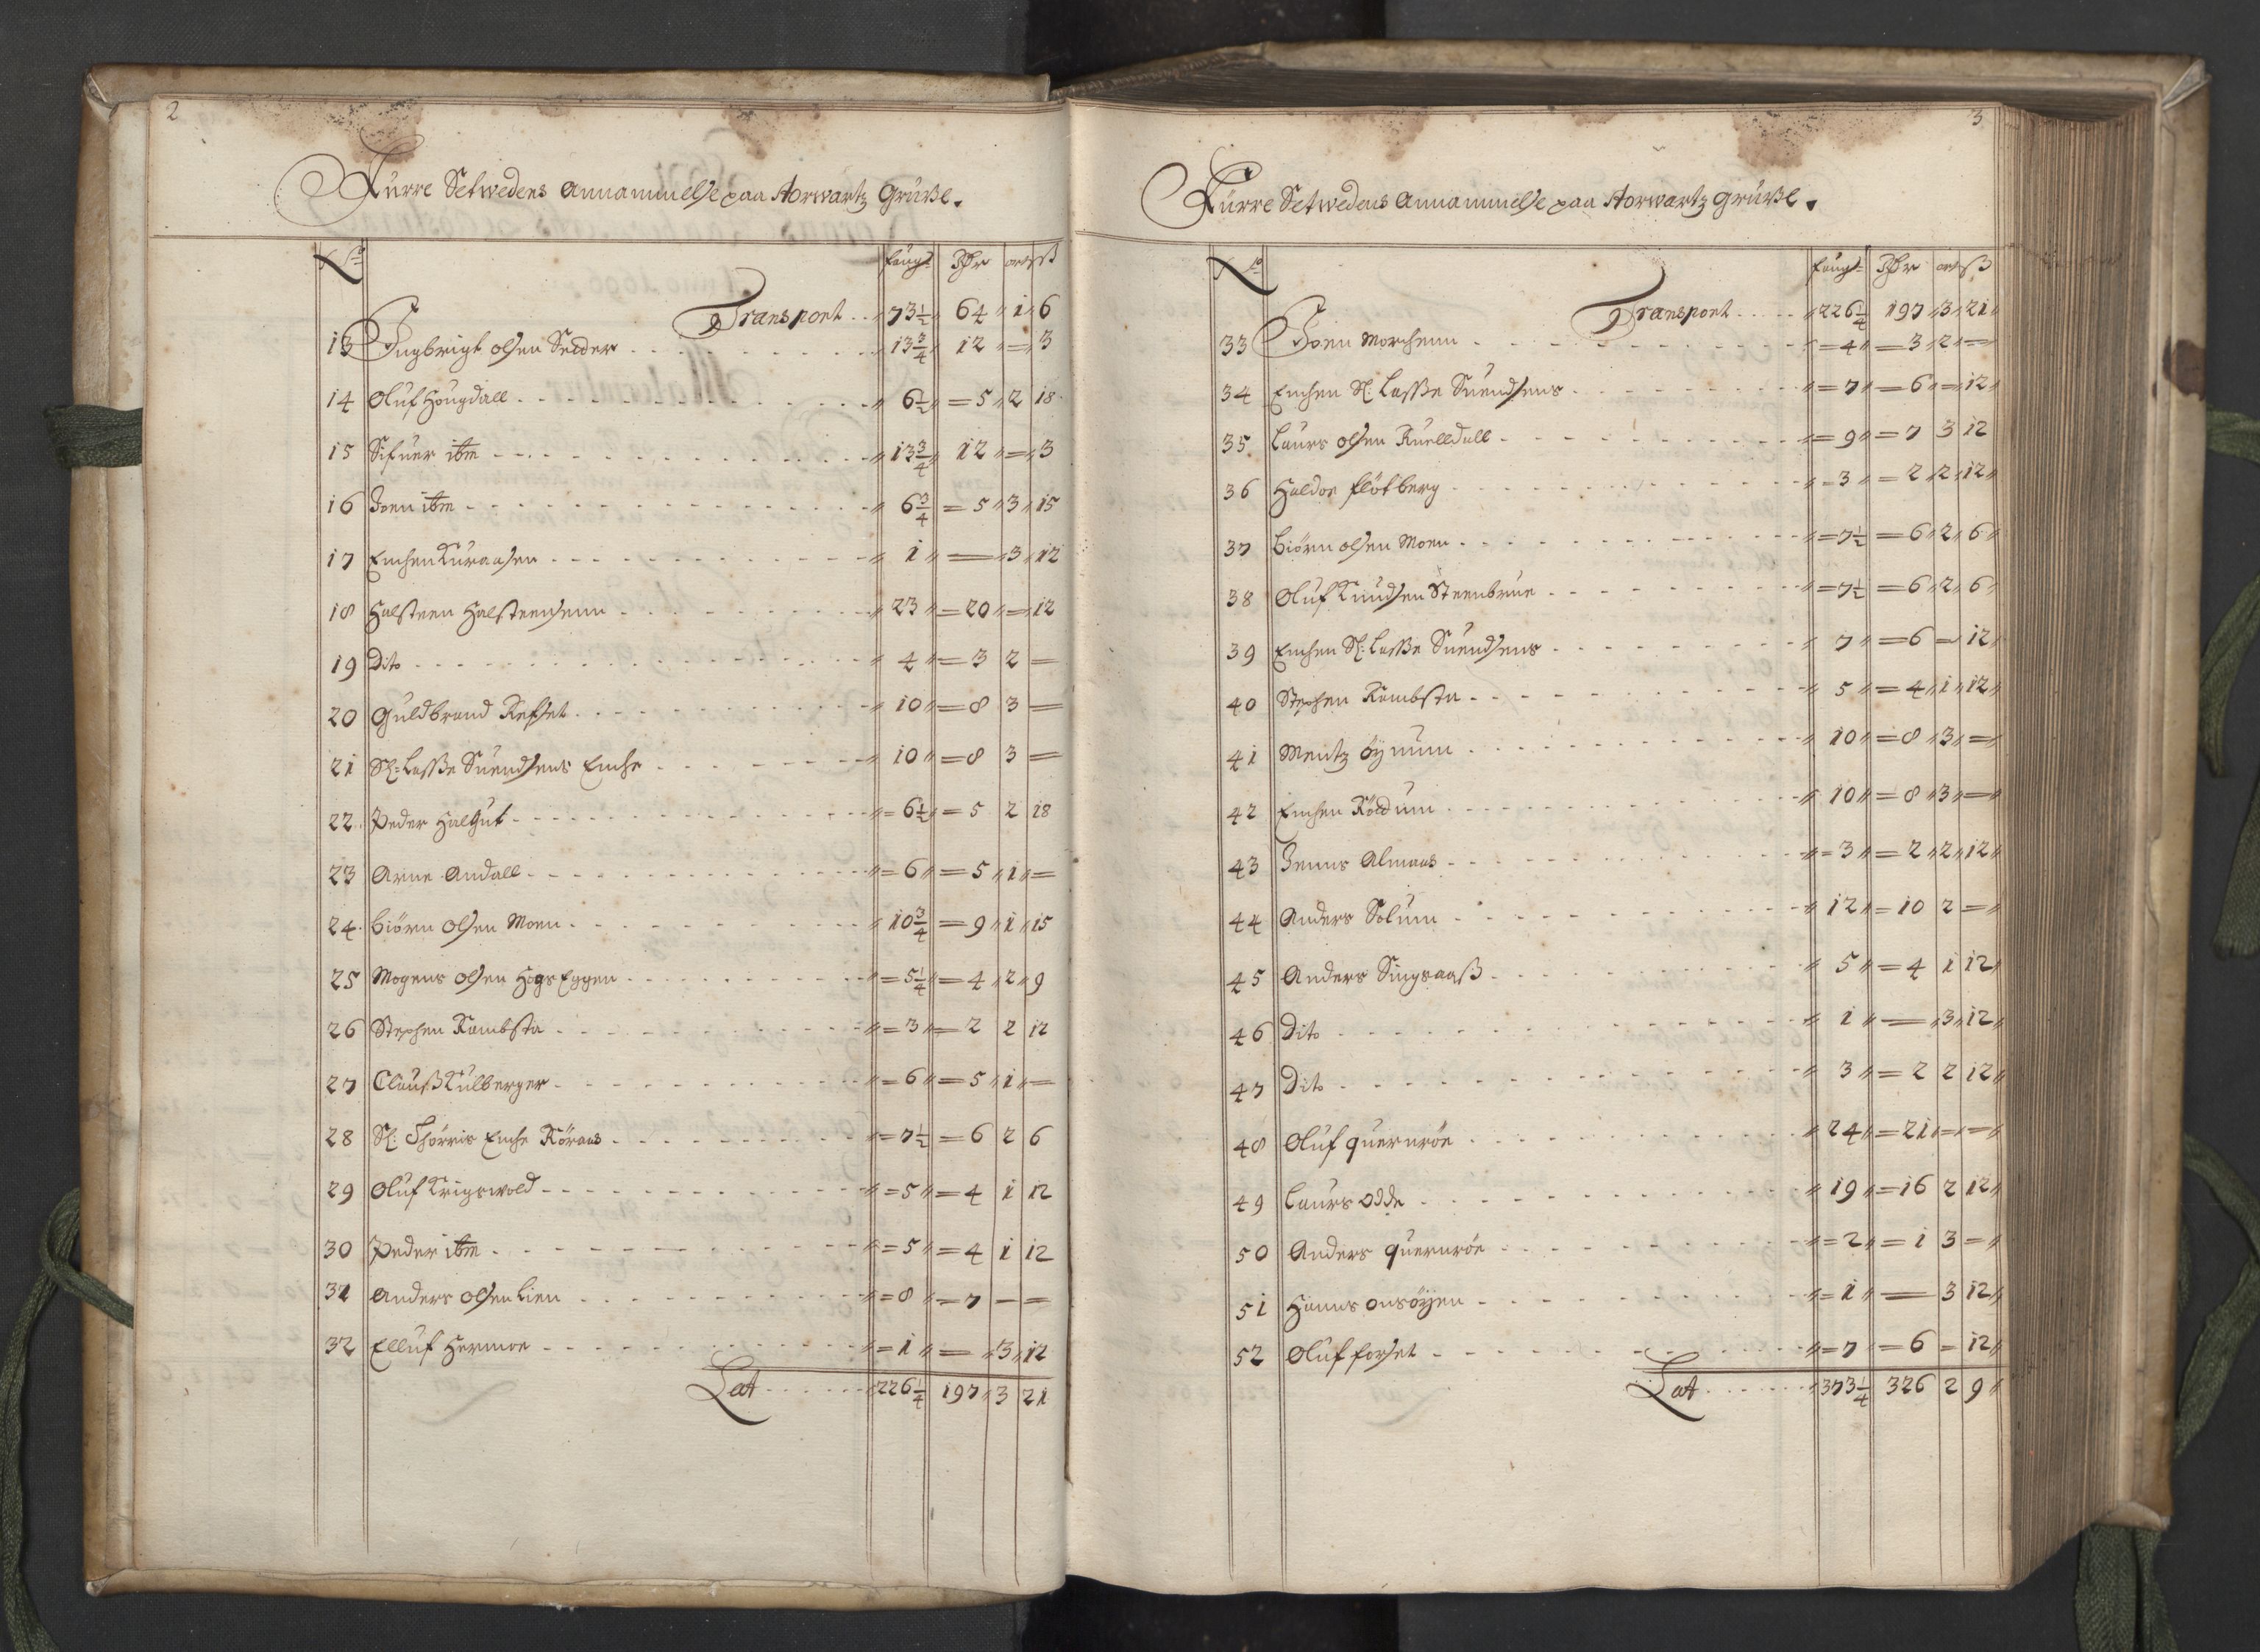 2
Furre Setwedens Annammelse paa Storwartz Gruße.
No faugn Rdr ort ß
Transport 73½ 64 1 6
13 Ingbrigt olsen Secder 13¾ 12 = 3
14 Oluf Hougdall 6½ = 5 2 18
15 Sifuer ibm 13¾ 12 = 3
16 Joen ibm 6¾ = 5 3 15
17 Enchen Kuraasen 1 = 3 12
18 Halsteen Halsteensenn 23 = 20 = 12
19 Dito 4 = 3 2 =
20 Guldbrand Refset 10 = 8 3 =
21 Sl: Laßße Suendsens Enche 10 = 8 3 =
22 Peder Halgut = 6½ = 5 2 18
23 Arne Andall = 6 = 5 1 =
24 Biörn Olsen Moen 10¾ = 9 1 15
25 Mogens Olsen HogsEggen = 5¼ = 4 2 9
26 Stephen Kambsta = 3 = 2 2 12
27 Clauß Kulberger = 6 = 5 1 =
28 Sl: Thörris Enche Röraas = 7½ = 6 2 6
29 Oluf Krigswold = 5 = 4 1 12
30 Peder ibm = 5 = 4 1 12
31 Anders Olsen Lien = 8 = 7 = =
32 Elluf Hermoe = 1 = 3 12
Lat 226¼ 197 3 21
3
Furre Setwedens Annammelse paa Storwartz gruße.
No faugn Rdr ort ß
Transport 226¼ 197 3 21
33 Joen Morchenn = 4 = 3 2 =
34 Enchen Sl: Laßße Suendsens = 7 = 6 = 12
35 Laurs olsen Kuelldall = 9 = 7 3 12
36 Haldor flötberg = 3 = 2 2 12
37 Biörn olsen Moen = 7½ = 6 2 6
38 Oluf Knudsen Steenbrue = 7½ = 6 2 6
39 Enchen Sl: Laßße Suendsens 7 = 6 = 12
40 Stephen Kambsta 5 = 4 1 12
41 Mentz öynum 10 = 8 3 =
42 Enchen Röldum 10 = 8 3 =
43 Jenns Almaas = 3 = 2 2 12
44 Anders Solum 12 = 10 2 =
45 Anders Singsaaß 5 = 4 1 12
46 Dito 1 = 3 12
47 Dito 3 = 2 2 12
48 Oluf quernröe 24 = 21 = =
49 Laurs Odde 19 = 16 2 12
50 Anders quernröe = 2 = 1 3 =
51 Hanns onsöyen = 1 = 3 12
52 Oluf forset = 7 = 6 = 12
Lat 373¼ 326 2 9